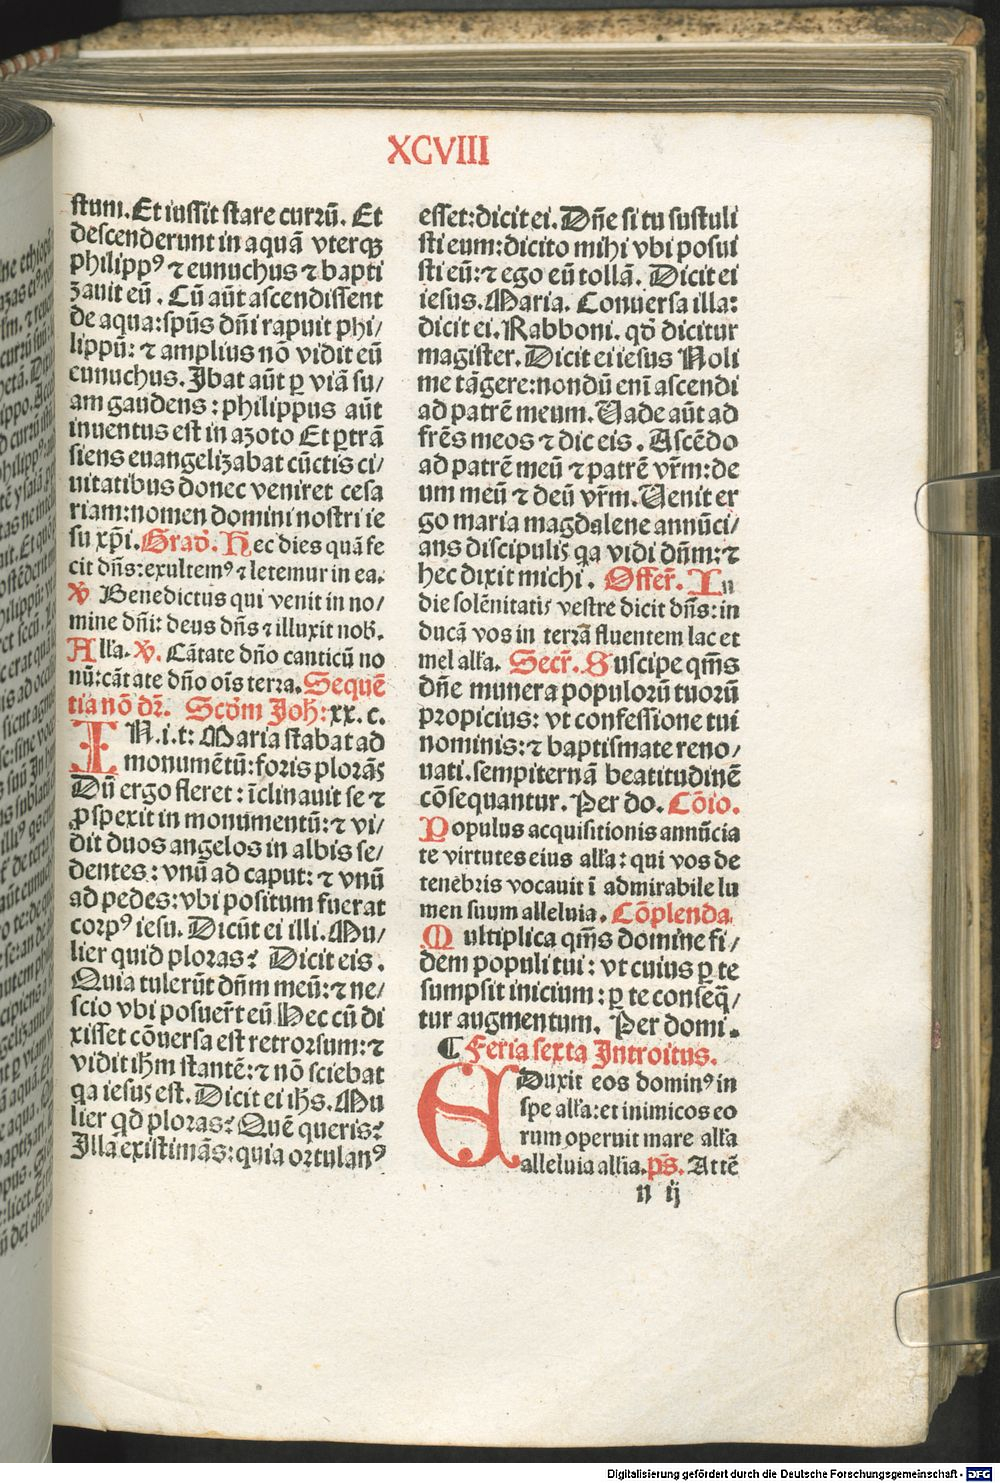 XCVIII
stum. Et iussit stare currū. Et
descenderunt in aquā vterqꝫ
philippꝰ ⁊ eunuchus ⁊ bapti
zauit eū. Cū aūt ascendissent
de aqua: spūs dn̄i rapuit phi/
lippū: ⁊ amplius nō vidit eū
eunuchus. Ibat aūt ꝑ viā su/
am gaudens: philippus aūt
inuentus est in azoto Et ꝑtrā
siens euangelizabat cūctis ci/
uitatibus donec veniret cesa
riam: nomen domini nostri ie
su xp̄i. Grad̄. Hec dies quā fe
cit dn̄s: exultemꝰ ⁊ letemur in ea.
℣ Benedictus qui venit in no/
mine dn̄i: deus dn̄s ⁊ illuxit nob̄.
All'a. ℣. Cātate dn̄o canticū no
nū: cāt ate dn̄o oīs terra. Sequē
tia nō dr̄. Scd̄m Joh̄: xx. c.
IN.i.t: Maria stabat ad
monumētū: foris plorās
Dū ergo fleret: īclinauit se ⁊
ꝓspexit in monumentū: ⁊ vi/
dit duos angelos in albis se/
dentes: vnū ad caput: ⁊ vnū
ad pedes: vbi positum fuerat
corpꝰ iesu. Dicūt ei illi. Mu/
lier quid ploras? Dicit eis.
Quia tulerūt dn̄m meū: ⁊ ne/
scio vbi posuer̄t eū Hec cū di
xisset cōuersa est retrorsum: ⁊
vidit ih̄m stantē: ⁊ nō sciebat
qa iesus est. Dicit ei ih̄s. Mu
lier qd ploras? Quē queris?
Illa existimās: quia ortulanꝰ
esset: dicit ei. Dn̄e si tu sustuli
sti eum: dicito mihi vbi posui
sti eū: ⁊ ego eū tollā. Dicit ei
iesus. Maria. Conuersa illa:
dicit ei. Rabboni. qd̄ dicitur
magister. Dicit ei iesus Noli
me tāgere: nondū enī ascendi
ad patrē meum. Uade aūt ad
frēs meos ⁊ dic eis. Ascēdo
ad patrē meū ⁊ patrē vr̄m: de
um meū ⁊ deū vr̄m. Uenit er
go maria magdalene annūci/
ans discipulis qa vidi dn̄m: ⁊
hec dixit michi. Offer̄. In
die solēnitatis vestre dicit dn̄s: in
ducā vos in terrā fluentem lac et
mel all'a. Secr̄. Suscipe qm̄s
dn̄e munera populorū tuorū
propicius: vt confessione tui
nominis: ⁊ baptismate reno/
uati. sempiternā beatitudinē
cōsequantur. Per do. Cōio.
Populus acquisitionis annūcia
te virtutes eius all'a: qui vos de
tenebris vocauit ī admirabile lu
men suum alleluia. Cōplenda
Multiplica qm̄s domine fi/
dem populi tui: vt cuius ꝑ te
sumpsit inicium: ꝑ te conseq̄/
tur augmentum. Per domi.
¶ Feria sexta Introitus.
EDuxit eos dominꝰ in
spe all'a: et inimicos eo
rum operuit mare all'a
alleluia all'ia. ps̄. Attē
n ij
Digitalisierung gefördert durch die Deutsche Forschungsgemeinschaft - DFG